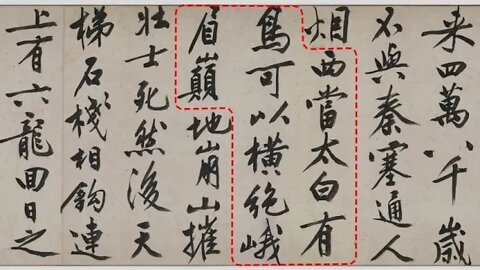 来四萬八千歲
不與秦塞通人
烟西當太白有
鳥可以横絶峨
眉巔地崩山摧
壮士死然後天
梯石棧相鈎連
上有六龍回日之